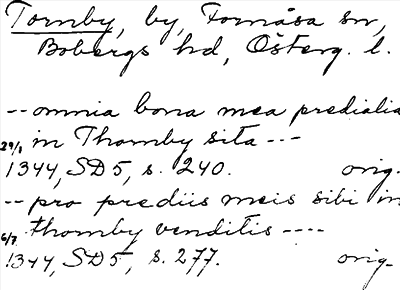 Tornby, by, Fornåsa sn,
Bobergs hd, Österg. l.
-- omnia bona mea predialia
in Thornby sita ---
29/1 1344, SD5, s. 240. orig.
-- pro prediis meis sibi in
thornby venditis ----
6/7 1344, SD5, s. 277. orig.